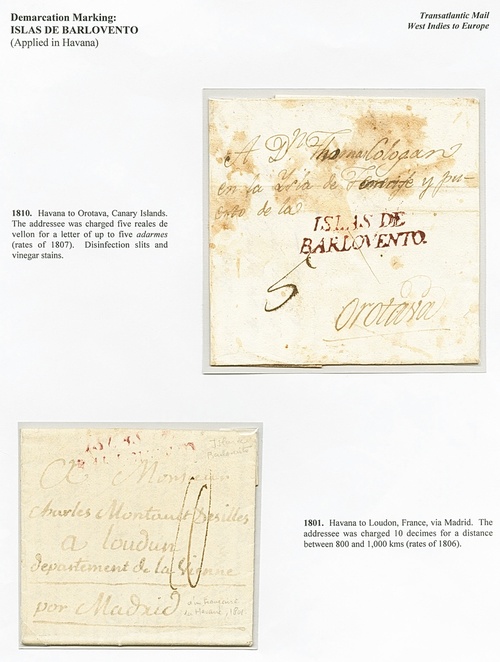 Demarcation Marking:
ISLAS DE BARLOVENTO
(Applied in Havana)
Transatlantic Mail
West Indies to Europe
1810. Havana to Orotava, Canary Islands.
The addressee was charged five reales de
vellon for a letter of up to five adarmes
(rates of 1807). Disinfection slits and
vinegar stains.
A Dn Thomas Cologan
en la Ysla de Tenerife y pu-
erto de la
ISLAS DE
BARLOVENTO.
5
Orotava
ISLAS
Islas de
Barlovento
A Monsieur
Charles Montault Desilles
10
a loudun
departement de la Vienne
por Madrid
1801. Havana to Loudon, France, via Madrid. The
addressee was charged 10 decimes for a distance
between 800 and 1,000 kms (rates of 1806).